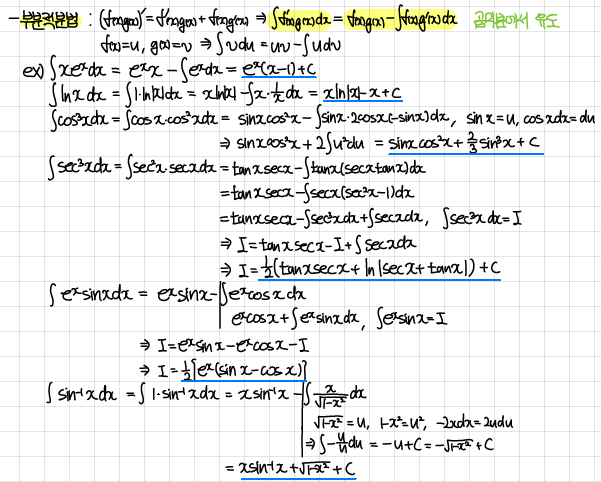 - 부분적분법 : (f(x)g(x))' = f'(x)g(x) + f(x)g'(x) ⇒ ∫f'(x)g(x)dx = f(x)g(x) - ∫f(x)g'(x)dx 곱미분에서 유도
f(x)=u, g(x)=v ⇒ ∫v du = uv - ∫u dv
ex) ∫xeˣdx = eˣx - ∫eˣdx = eˣ(x-1)+C
∫ln x dx = ∫1·ln|x|dx = xln|x| - ∫x·1/x dx = xln|x| - x + C
∫cos³xdx = ∫cosx·cos²xdx = sinxcos²x - ∫sinx·2cosx(-sinx)dx, sinx=u, cosxdx=du
⇒ sinxcos²x + 2∫u²du = sinxcos²x + 2/3 sin³x + C
∫sec³xdx = ∫sec²x·secxdx = tanxsecx - ∫tanx(secxtanx)dx
= tanxsecx - ∫secx(sec²x-1)dx
= tanxsecx - ∫sec³xdx + ∫secxdx, ∫sec³xdx = I
⇒ I = tanxsecx - I + ∫secxdx
⇒ I = 1/2(tanxsecx + ln|secx + tanx|) + C
∫eˣsinxdx = eˣsinx - ∫eˣcosxdx
eˣcosx + ∫eˣsinxdx, ∫eˣsinx = I
⇒ I = eˣsinx - eˣcosx - I
⇒ I = 1/2[eˣ(sinx - cosx)]
∫sin⁻¹xdx = ∫1·sin⁻¹xdx = xsin⁻¹x - ∫x/√(1-x²) dx
√(1-x²) = u, 1-x² = u², -2xdx = 2udu
⇒ ∫-u/u du = -u+C = -√(1-x²) + C
= xsin⁻¹x + √(1-x²) + C